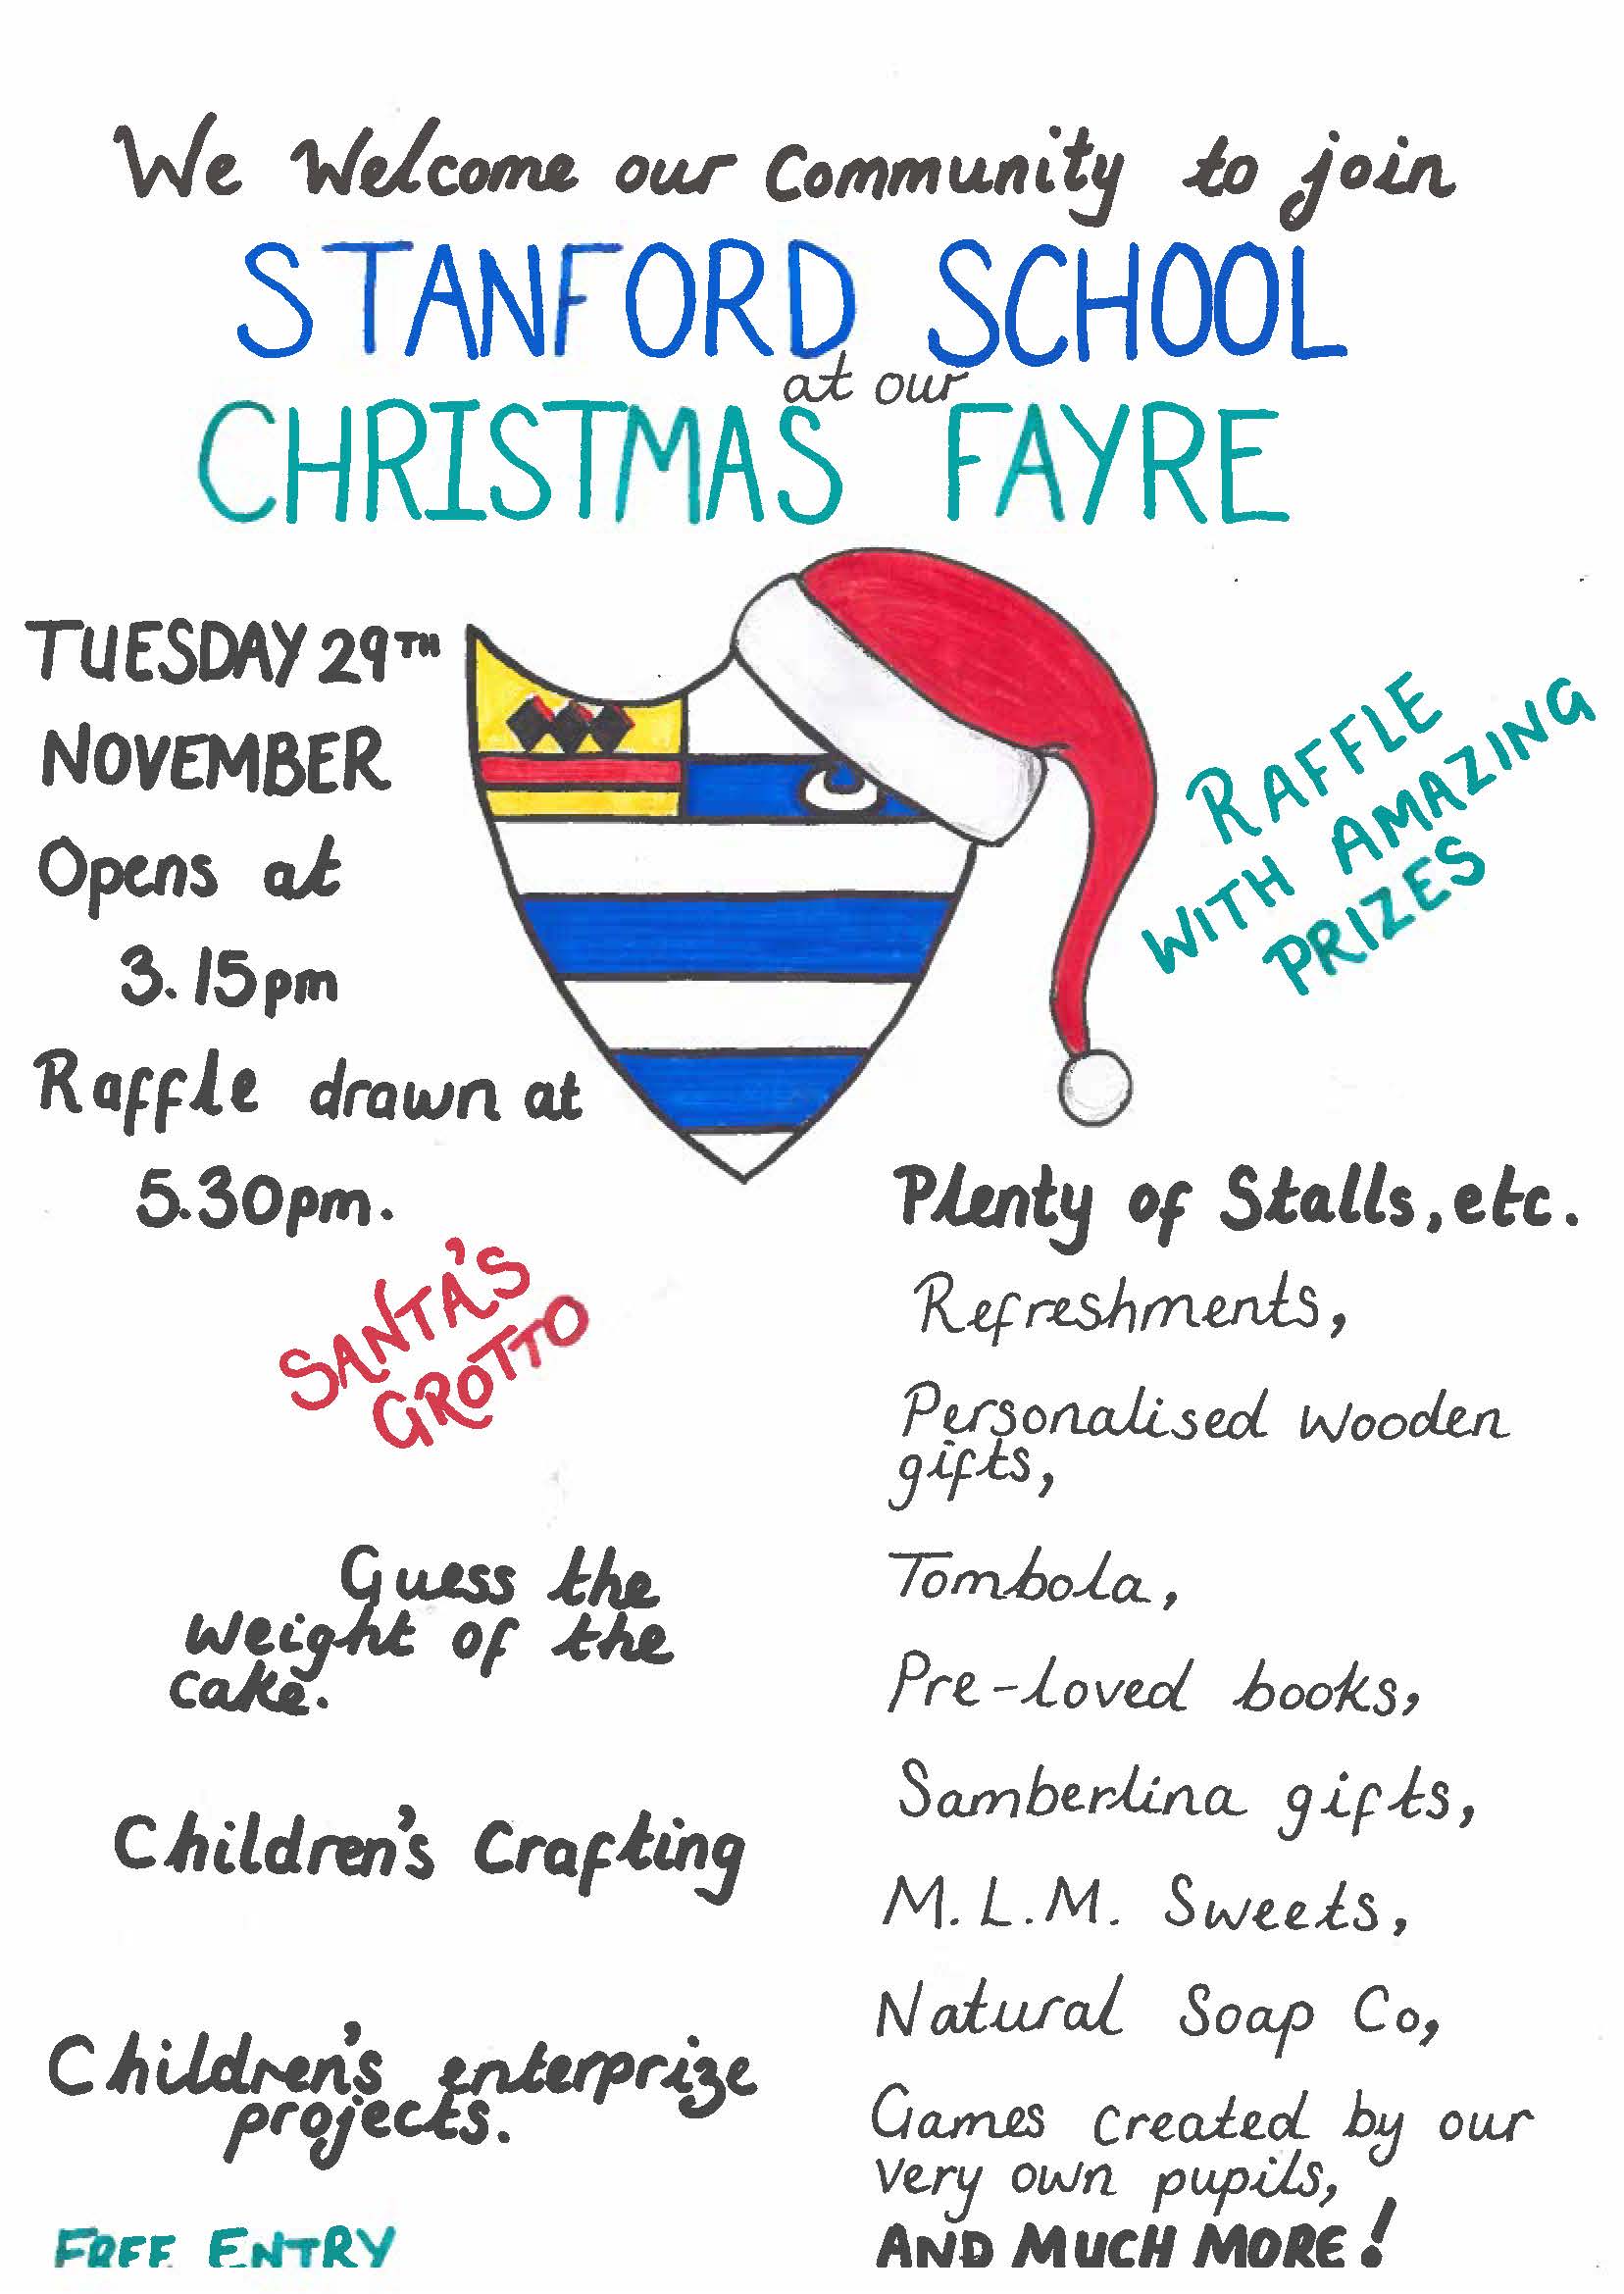 We Welcome our Community to join
STANFORD SCHOOL
at our
CHRISTMAS FAYRE
TUESDAY 29TH
NOVEMBER
Opens at
3.15pm
Raffle drawn at
5.30pm.
RAFFLE
WITH AMAZING
PRIZES
SANTA'S
GROTTO
Guess the
weight of the
cake.
Children's Crafting
Children's enterprize
projects.
FREE ENTRY
Plenty of Stalls, etc.
Refreshments,
Personalised Wooden
gifts,
Tombola,
Pre-loved books,
Samberlina gifts,
M.L.M. Sweets,
Natural Soap Co,
Games created by our
very own pupils,
AND MUCH MORE!